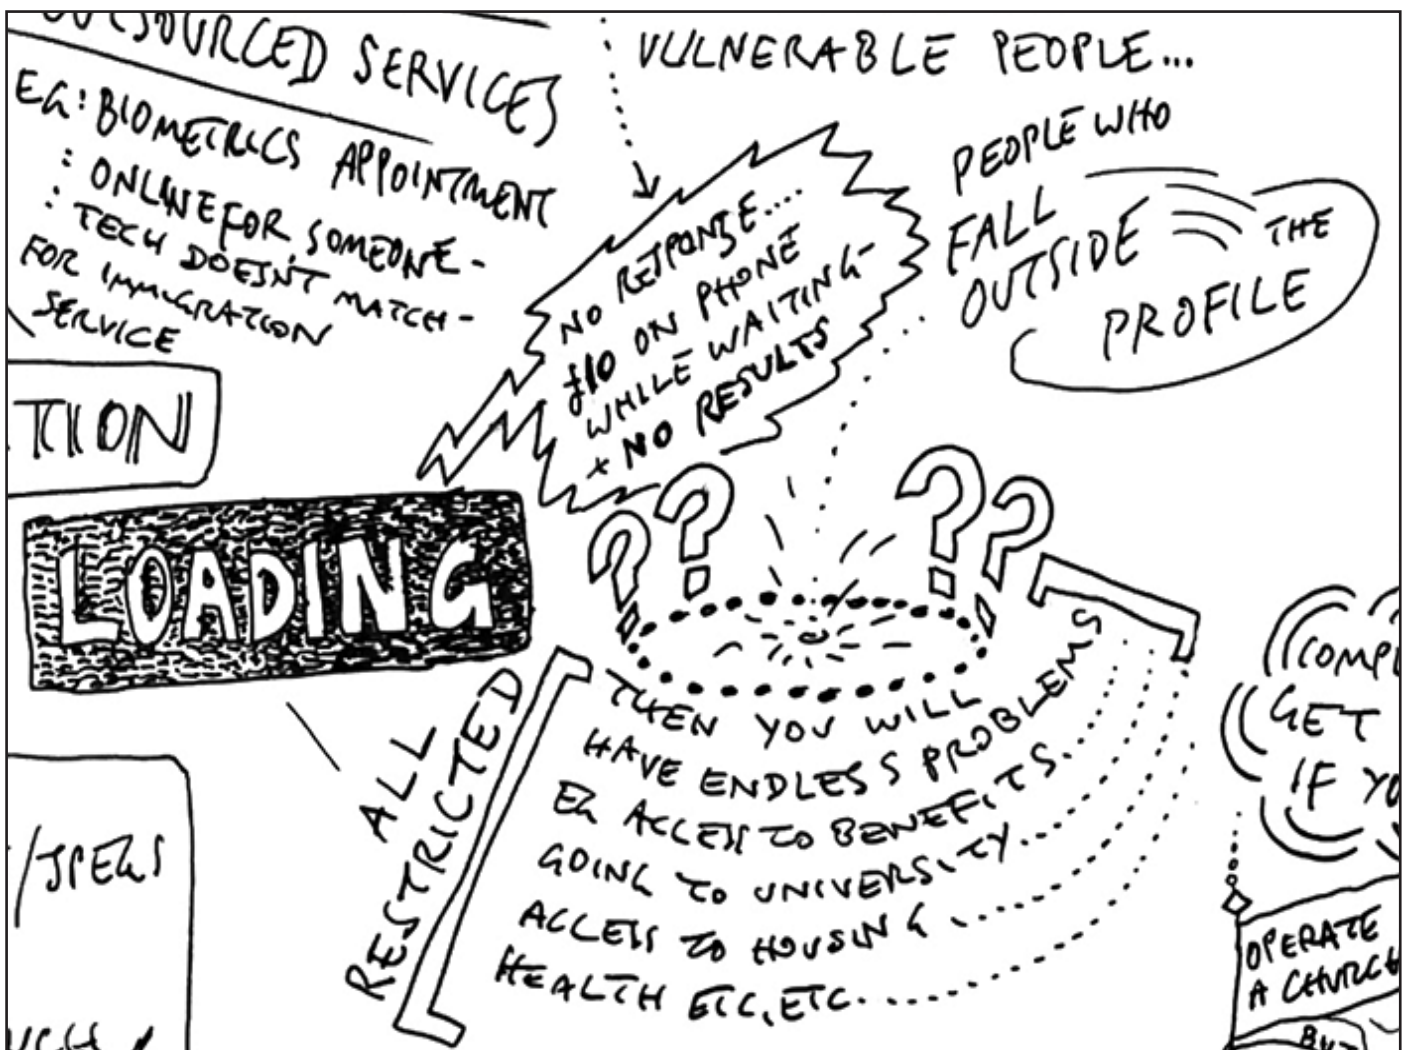 OUTSOURCED SERVICES
EG: BIOMETRICS APPOINTMENT
: ONLINE FOR SOMEONE -
: TECH DOESN'T MATCH -
FOR IMMIGRATION
SERVICE
TION
LOADING
/JPEGS
VULNERABLE PEOPLE...
PEOPLE WHO
FALL
OUTSIDE
THE
PROFILE
NO RESPONSE....
£10 ON PHONE
WHILE WAITING-
+ NO RESULTS
? ? ? ?
ALL
RESTRICTED
THEN YOU WILL
HAVE ENDLESS PROBLEMS
EG ACCESS TO BENEFITS
GOING TO UNIVERSITY
ACCESS TO HOUSING
HEALTH ETC, ETC.
COMPL
GET
IF YO
OPERATE
A CHURCH
BUT